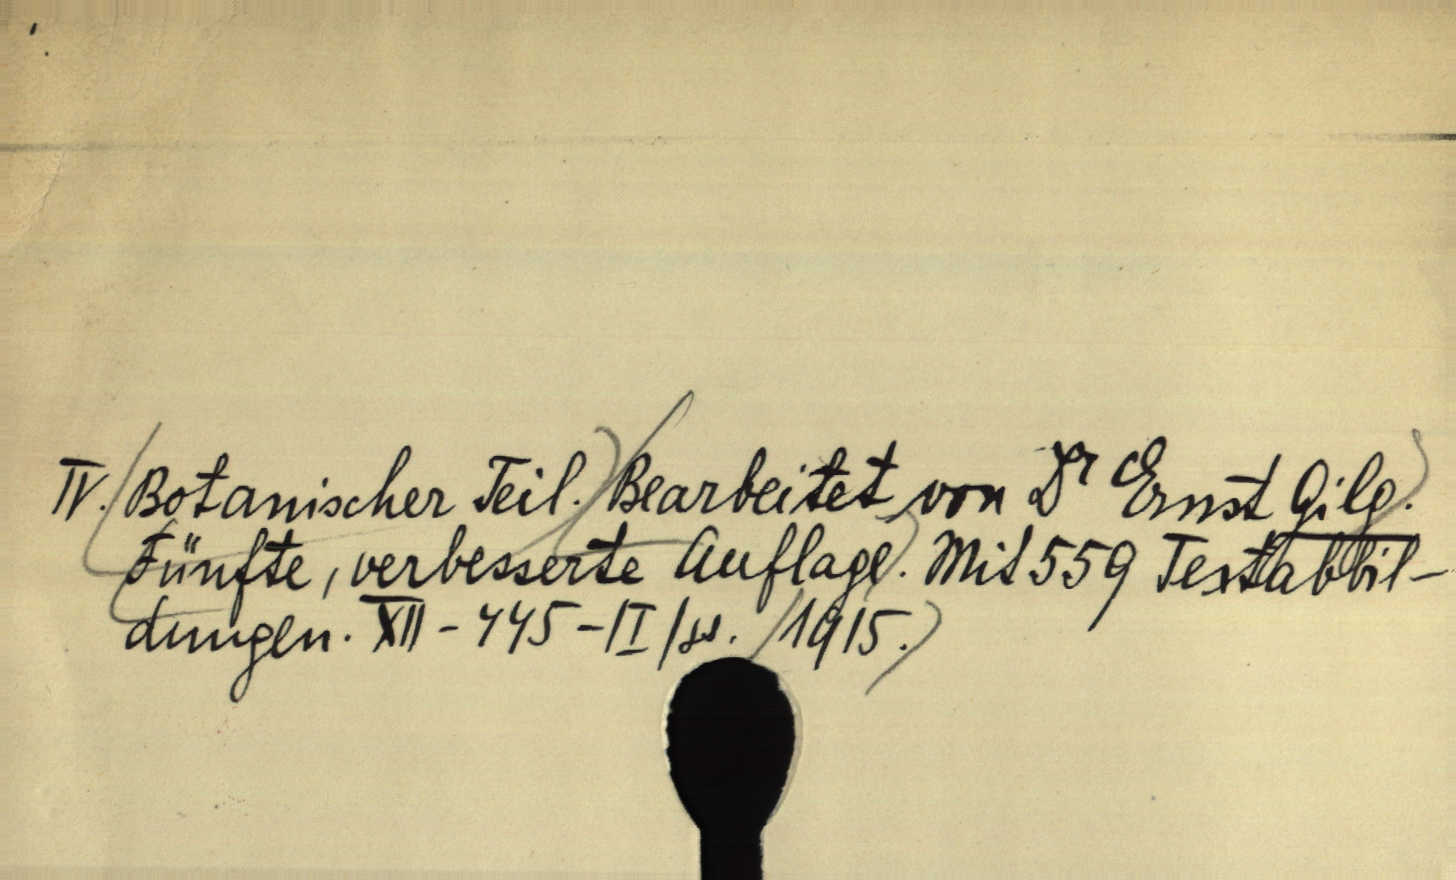 IV. (Botanischer Teil.) (Bearbeitet von Dr Ernst Gilg.)
(Fünfte, verbesserte Auflage.) Mit 559 Textabbil-
dungen. XII - 445 - |I| ss. (1915.)